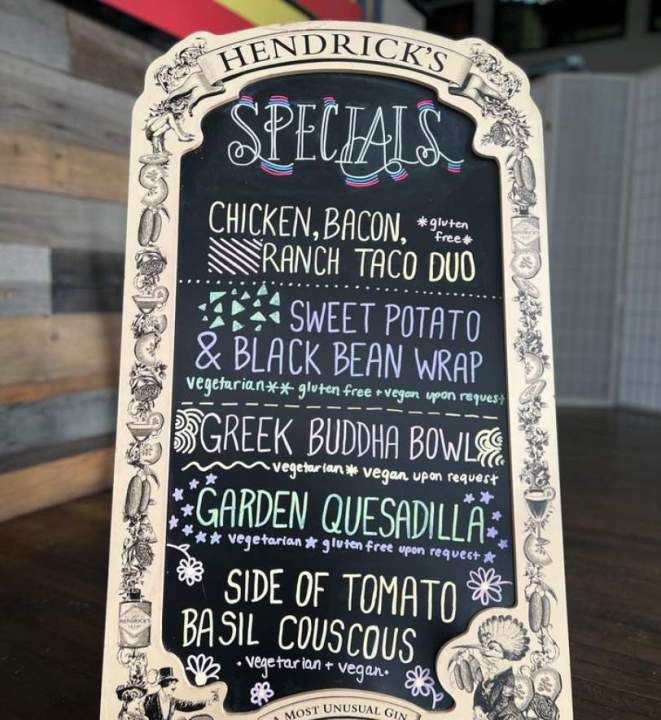 HENDRICK'S
SPECIALS
CHICKEN, BACON, *gluten
free*
RANCH TACO DUO
SWEET POTATO
& BLACK BEAN WRAP
vegetarian** gluten free + vegan upon request
GREEK BUDDHA BOWL
vegetarian * vegan upon request
GARDEN QUESADILLA
vegetarian ★ gluten free upon request ★
SIDE OF TOMATO
BASIL COUSCOUS
• vegetarian + vegan •
HENDRICK'S
A MOST UNUSUAL GIN